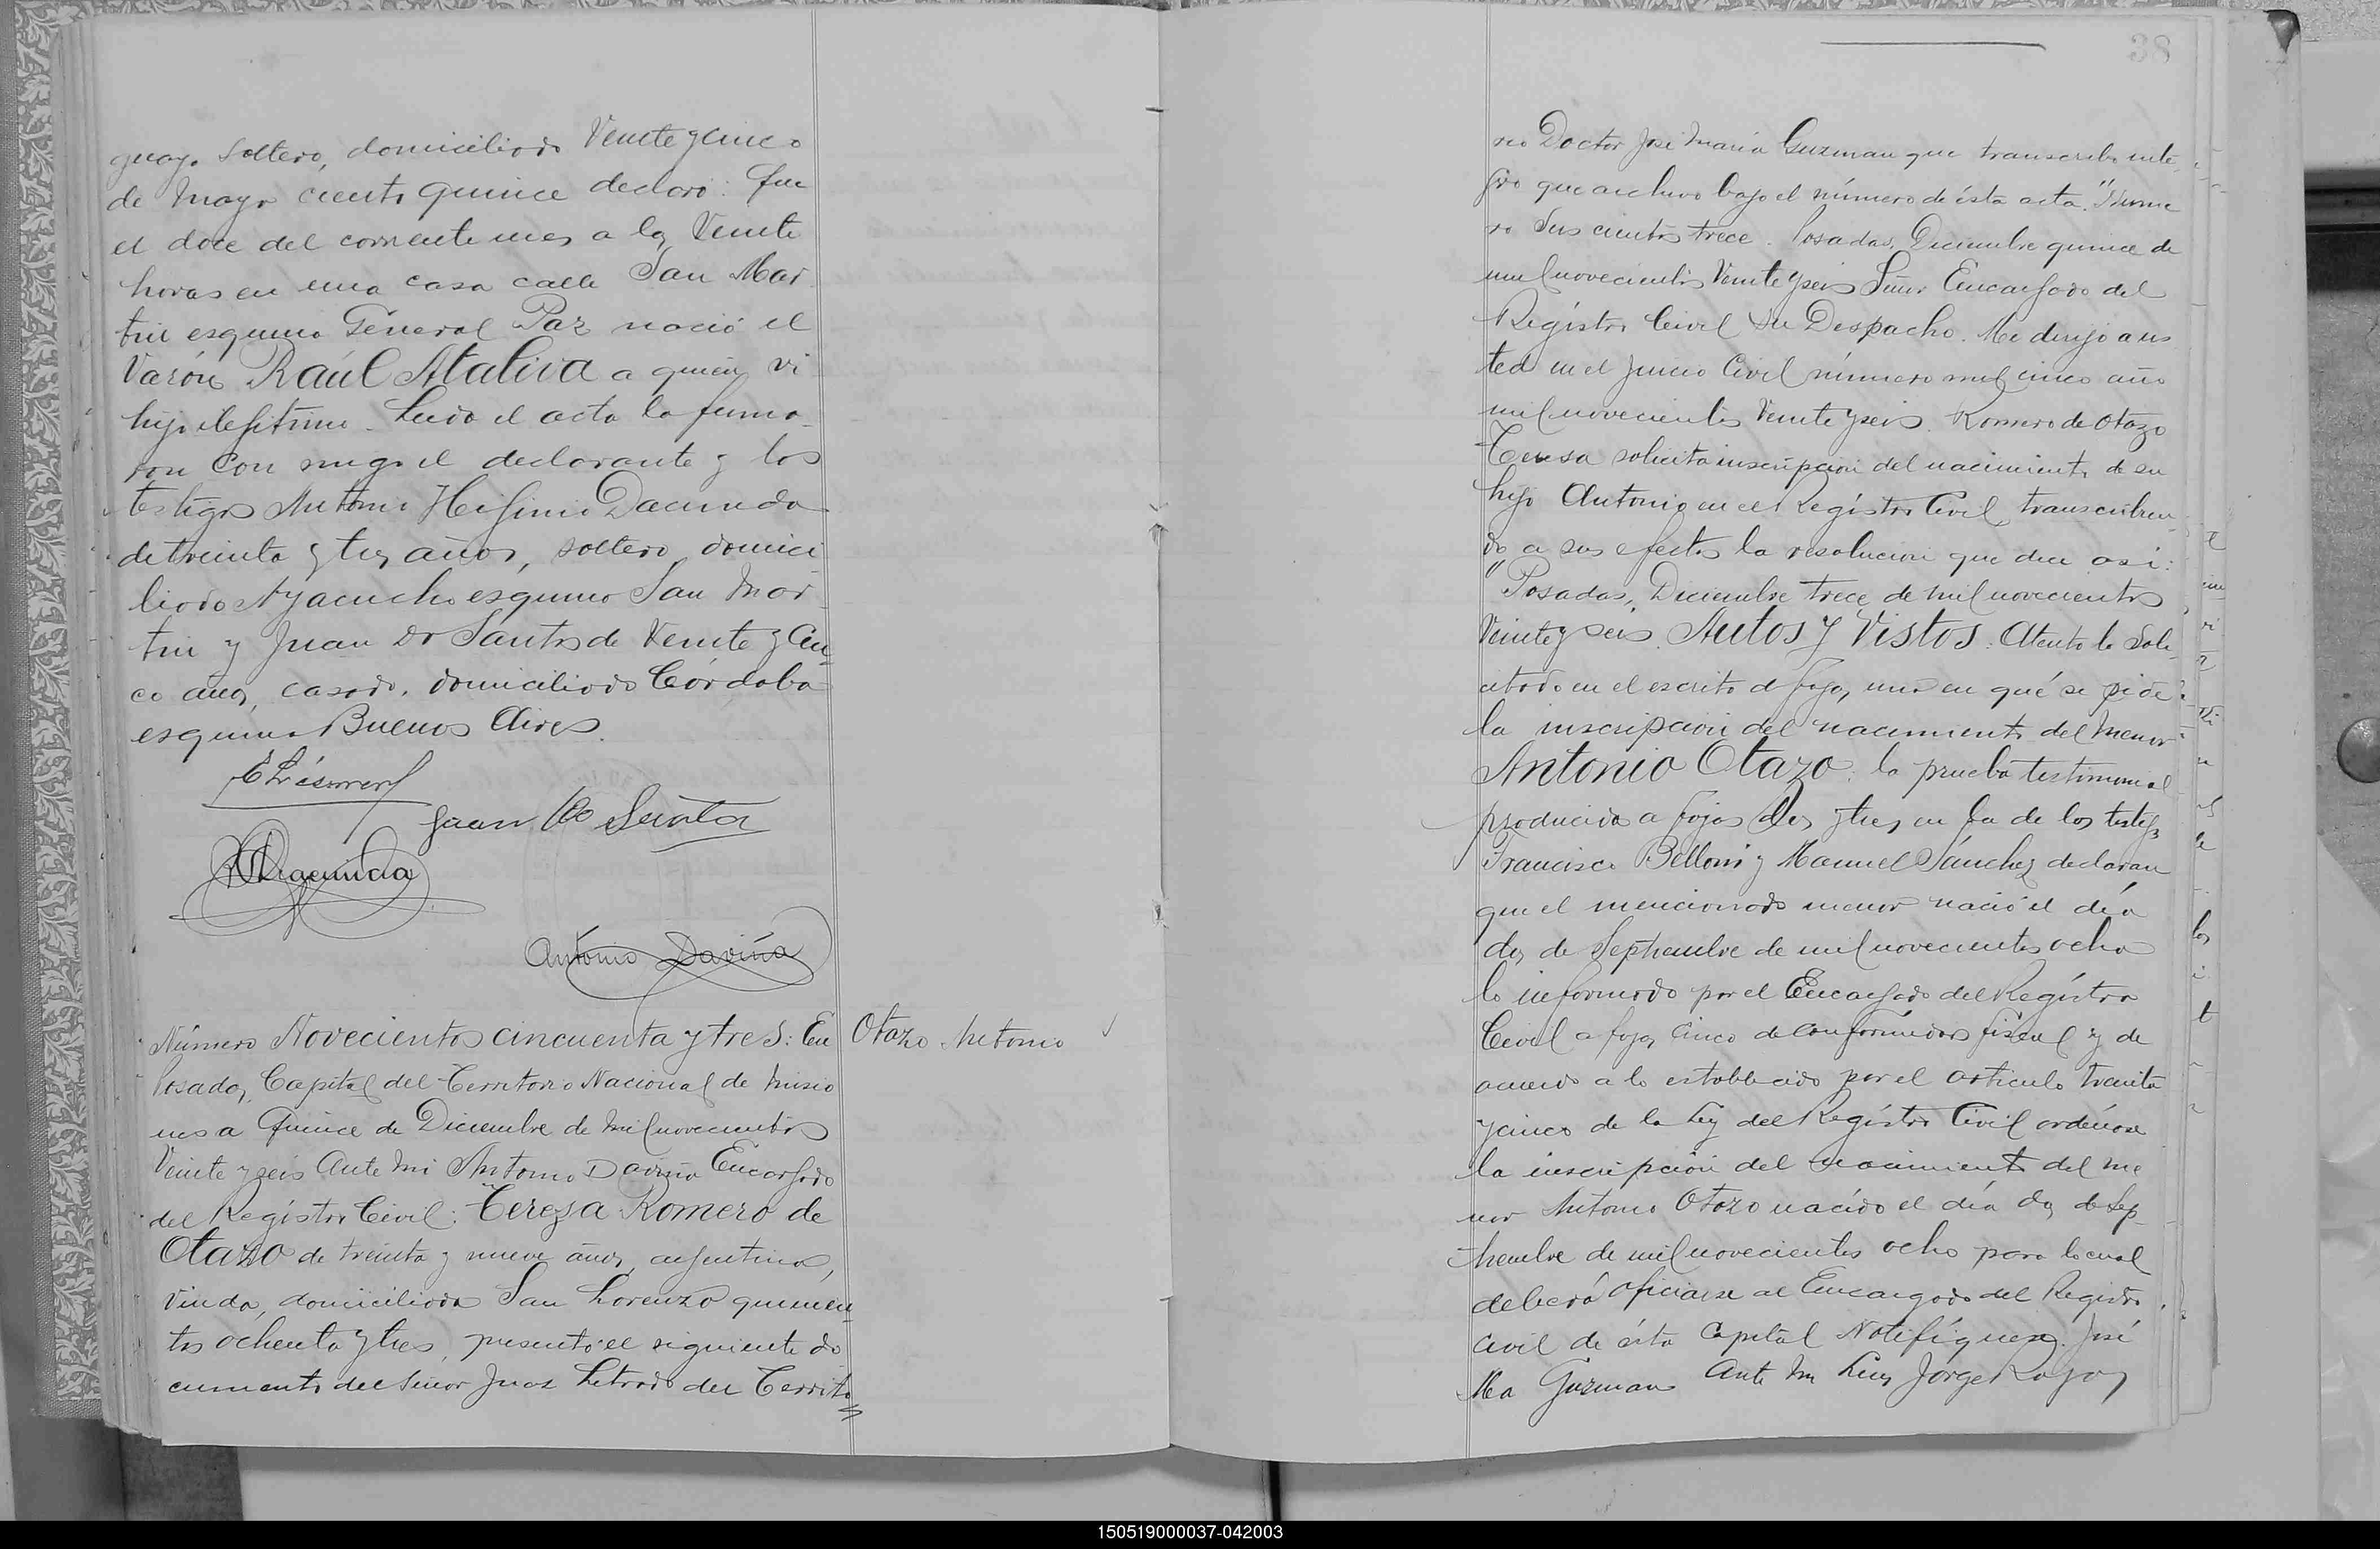 guayo soltero, domiciliado Veinte y cinco
de Mayo ciento quince declaró: Que
el doce del corriente mes a las Veinte
horas en una casa calle San Mar
tin esquina General Paz nació el
Varón Raúl Ataliva a quien vi
hijo ilegítimo. Leida el acta la firma
ron con migo el declarante y los
testigos Antonio Higinio Dacunda
de treinta y tres años, soltero domici
liado Ayacucho esquina San Mar
tin y Juan Do Santos de Veinte y Cin
co años, casado, domiciliado Córdoba
esquina Buenos Aires.
Juan Do Santos
Antonio Daviña
Número Novecientos cincuenta y tres: En
Otazo Antonio
Posadas, Capital del Territorio Nacional de Misio
nes a Quince de Diciembre de Mil novecientos
Veinte y seis Ante Mi Antonio Daviña Encargado
del Registro Civil: Teresa Romero de
Otazo de treinta y nueve años, argentina,
viuda, domiciliada San Lorenzo quinien
tos ochenta y tres, presentó el siguiente do
cumento del Señor Juez Letrado del Territo
38
rio Doctor José María Guzman que transcribo inte
gro que archivo bajo el número de ésta acta. "Nume
ro Seis cientos trece. Posadas, Diciembre quince de
mil novecientos Veinte y seis Señor Encargado del
Registro Civil Su Despacho. Me dirijo a us
ted en el Juicio Civil número mil cinco año
mil novecientos Veinte y seis. Romero de Otazo
Teresa solicita inscripción del nacimiento de su
hijo Antonio en el Registro Civil, transcribien
do a sus efectos la resolución que dice asi:
"Posadas, Diciembre trece de mil novecientos
Veinte y seis. Autos y Vistos: Atento lo Soli
citado en el escrito de fojas una en qué se pide
la inscripción del nacimiento del menor
Antonio Otazo; la prueba testimonial
producida a fojas dos y tres en la de los testigos
Francisco Belloni y Manuel Sánchez declaran
que el mencionado menor nació el día
dos de Septiembre de mil novecientos ocho
lo informado por el Encargado del Registro
Civil a fojas cinco de conformidad fiscal y de
acuerdo a lo establecido por el artículo treinta
y cinco de la Ley del Registro Civil ordénase
la inscripción del nacimiento del me
nor Antonio Otazo nacido el día dos de Sep
tiembre de mil novecientos ocho para lo cual
deberá oficiarse al Encargado del Registro
Civil de ésta Capital Notifíquese. José
Ma Guzman Ante mi Luis Jorge
150519000037-042003